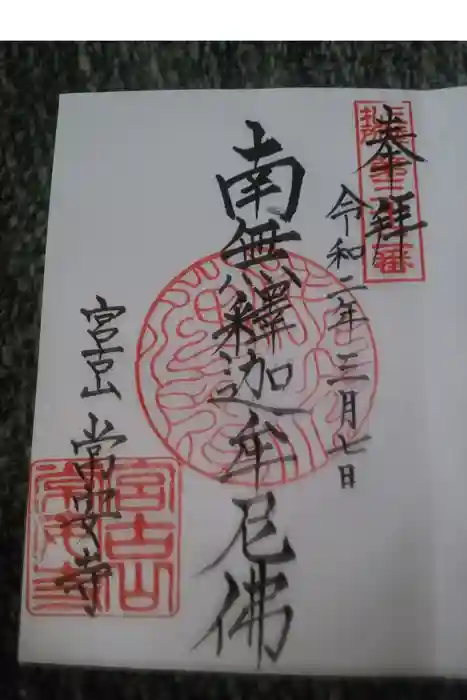 奉拜
令和二年三月七日
南無釋迦牟尼佛
宮古山 常安寺
宮古山
常安寺